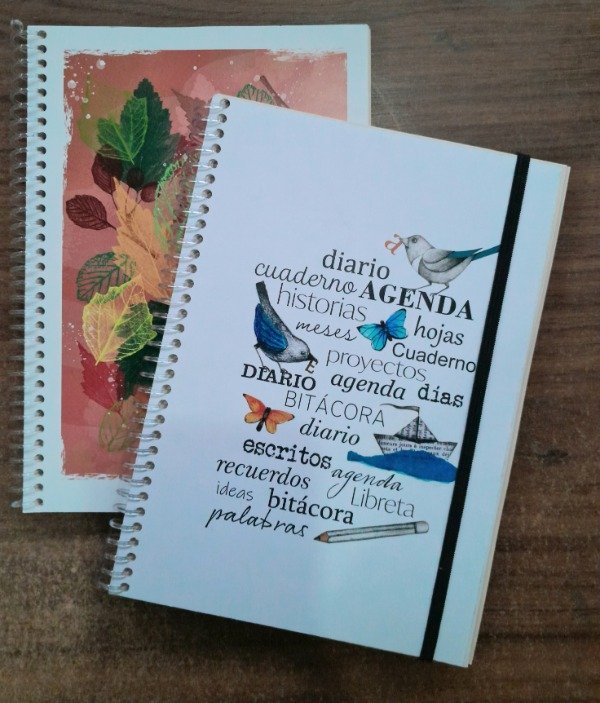 diario
cuaderno AGENDA
historias
meses hojas
Cuaderno
proyectos
DIARIO agenda días
BITÁCORA
diario
escritos agenda
recuerdos Libreta
ideas bitácora
palabras